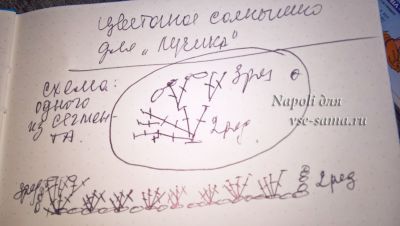 цветочное солнышко
для "лучика"
схема:
одного
из сегмен-
та.
3ряд
2ряд
Napoli для
vse-sama.ru
3ряд
2ряд